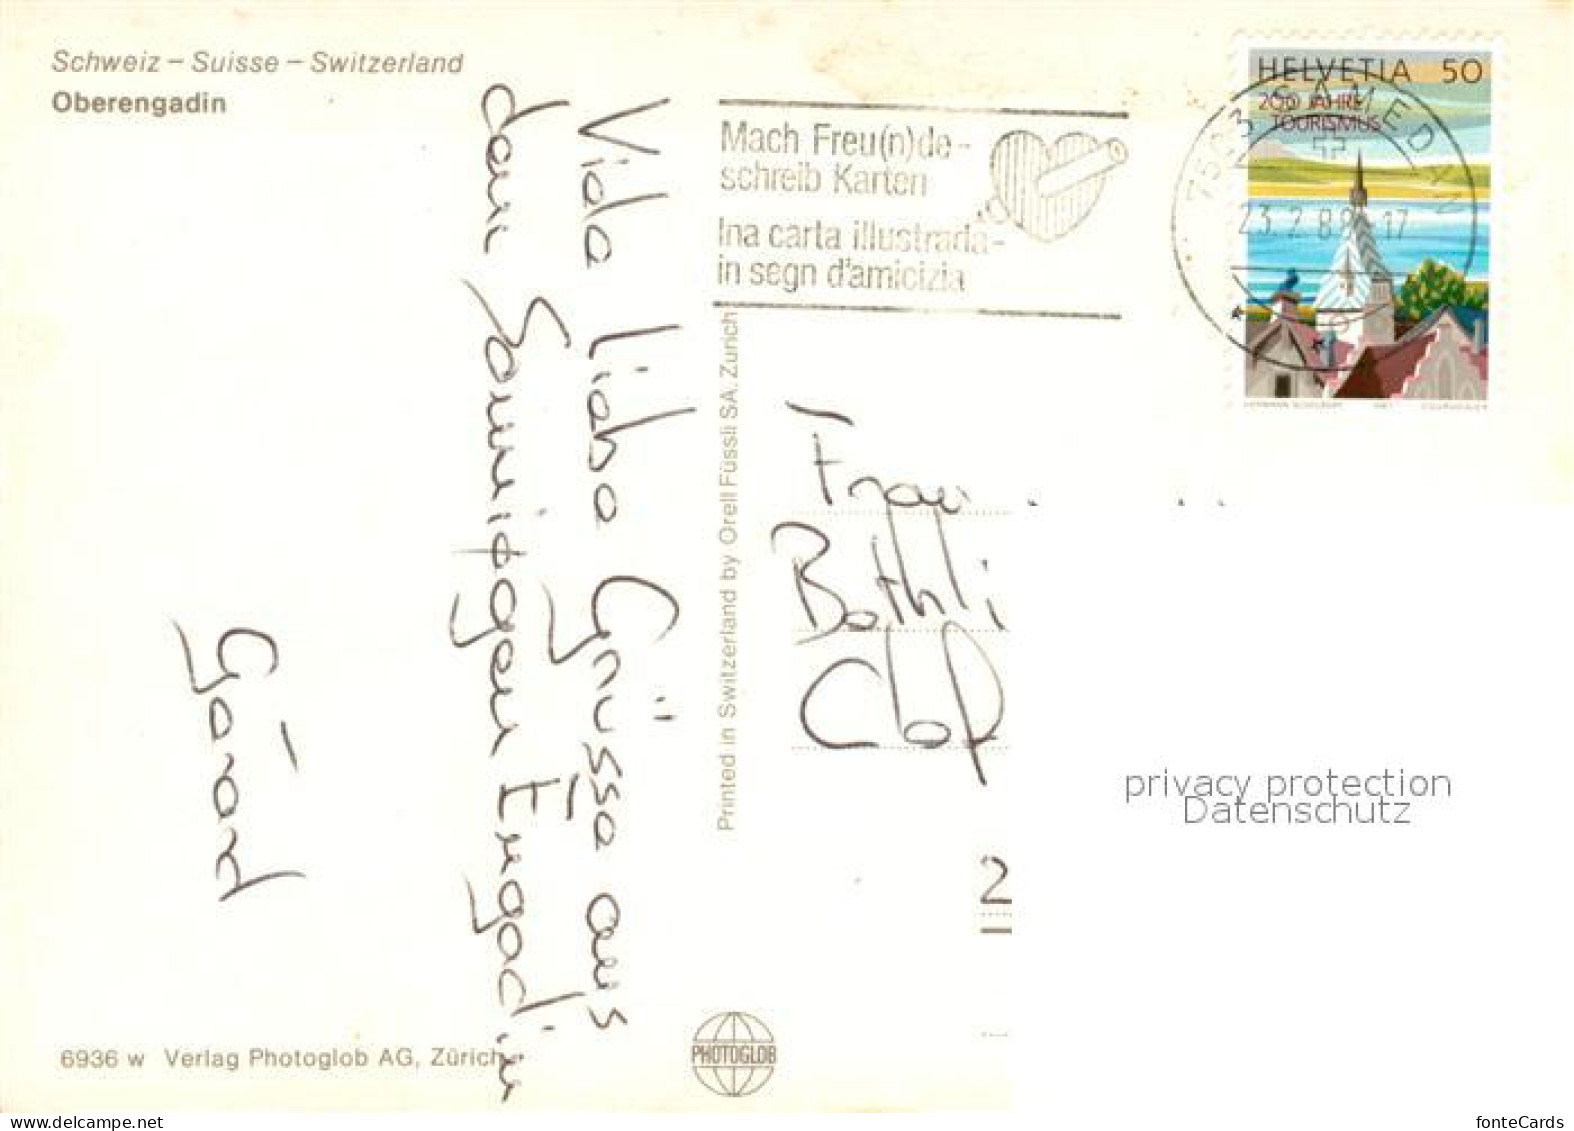 Schweiz – Suisse – Switzerland
Oberengadin
Viele liebe Grüsse aus
dem sonnigen Engadin
Gérard
6936 w Verlag Photoglob AG, Zürich
Printed in Switzerland by Orell Füssli SA. Zurich
PHOTOGLOB
Mach Freu(n)de-
schreib Karten
Ina carta illustrada-
in segn d'amicizia
HELVETIA 50
200 JAHRE
TOURISMUS
7503 SAMEDAN
23.2.88-17
Frau
2
privacy protection
Datenschutz
My-postcards.net
fonteCards